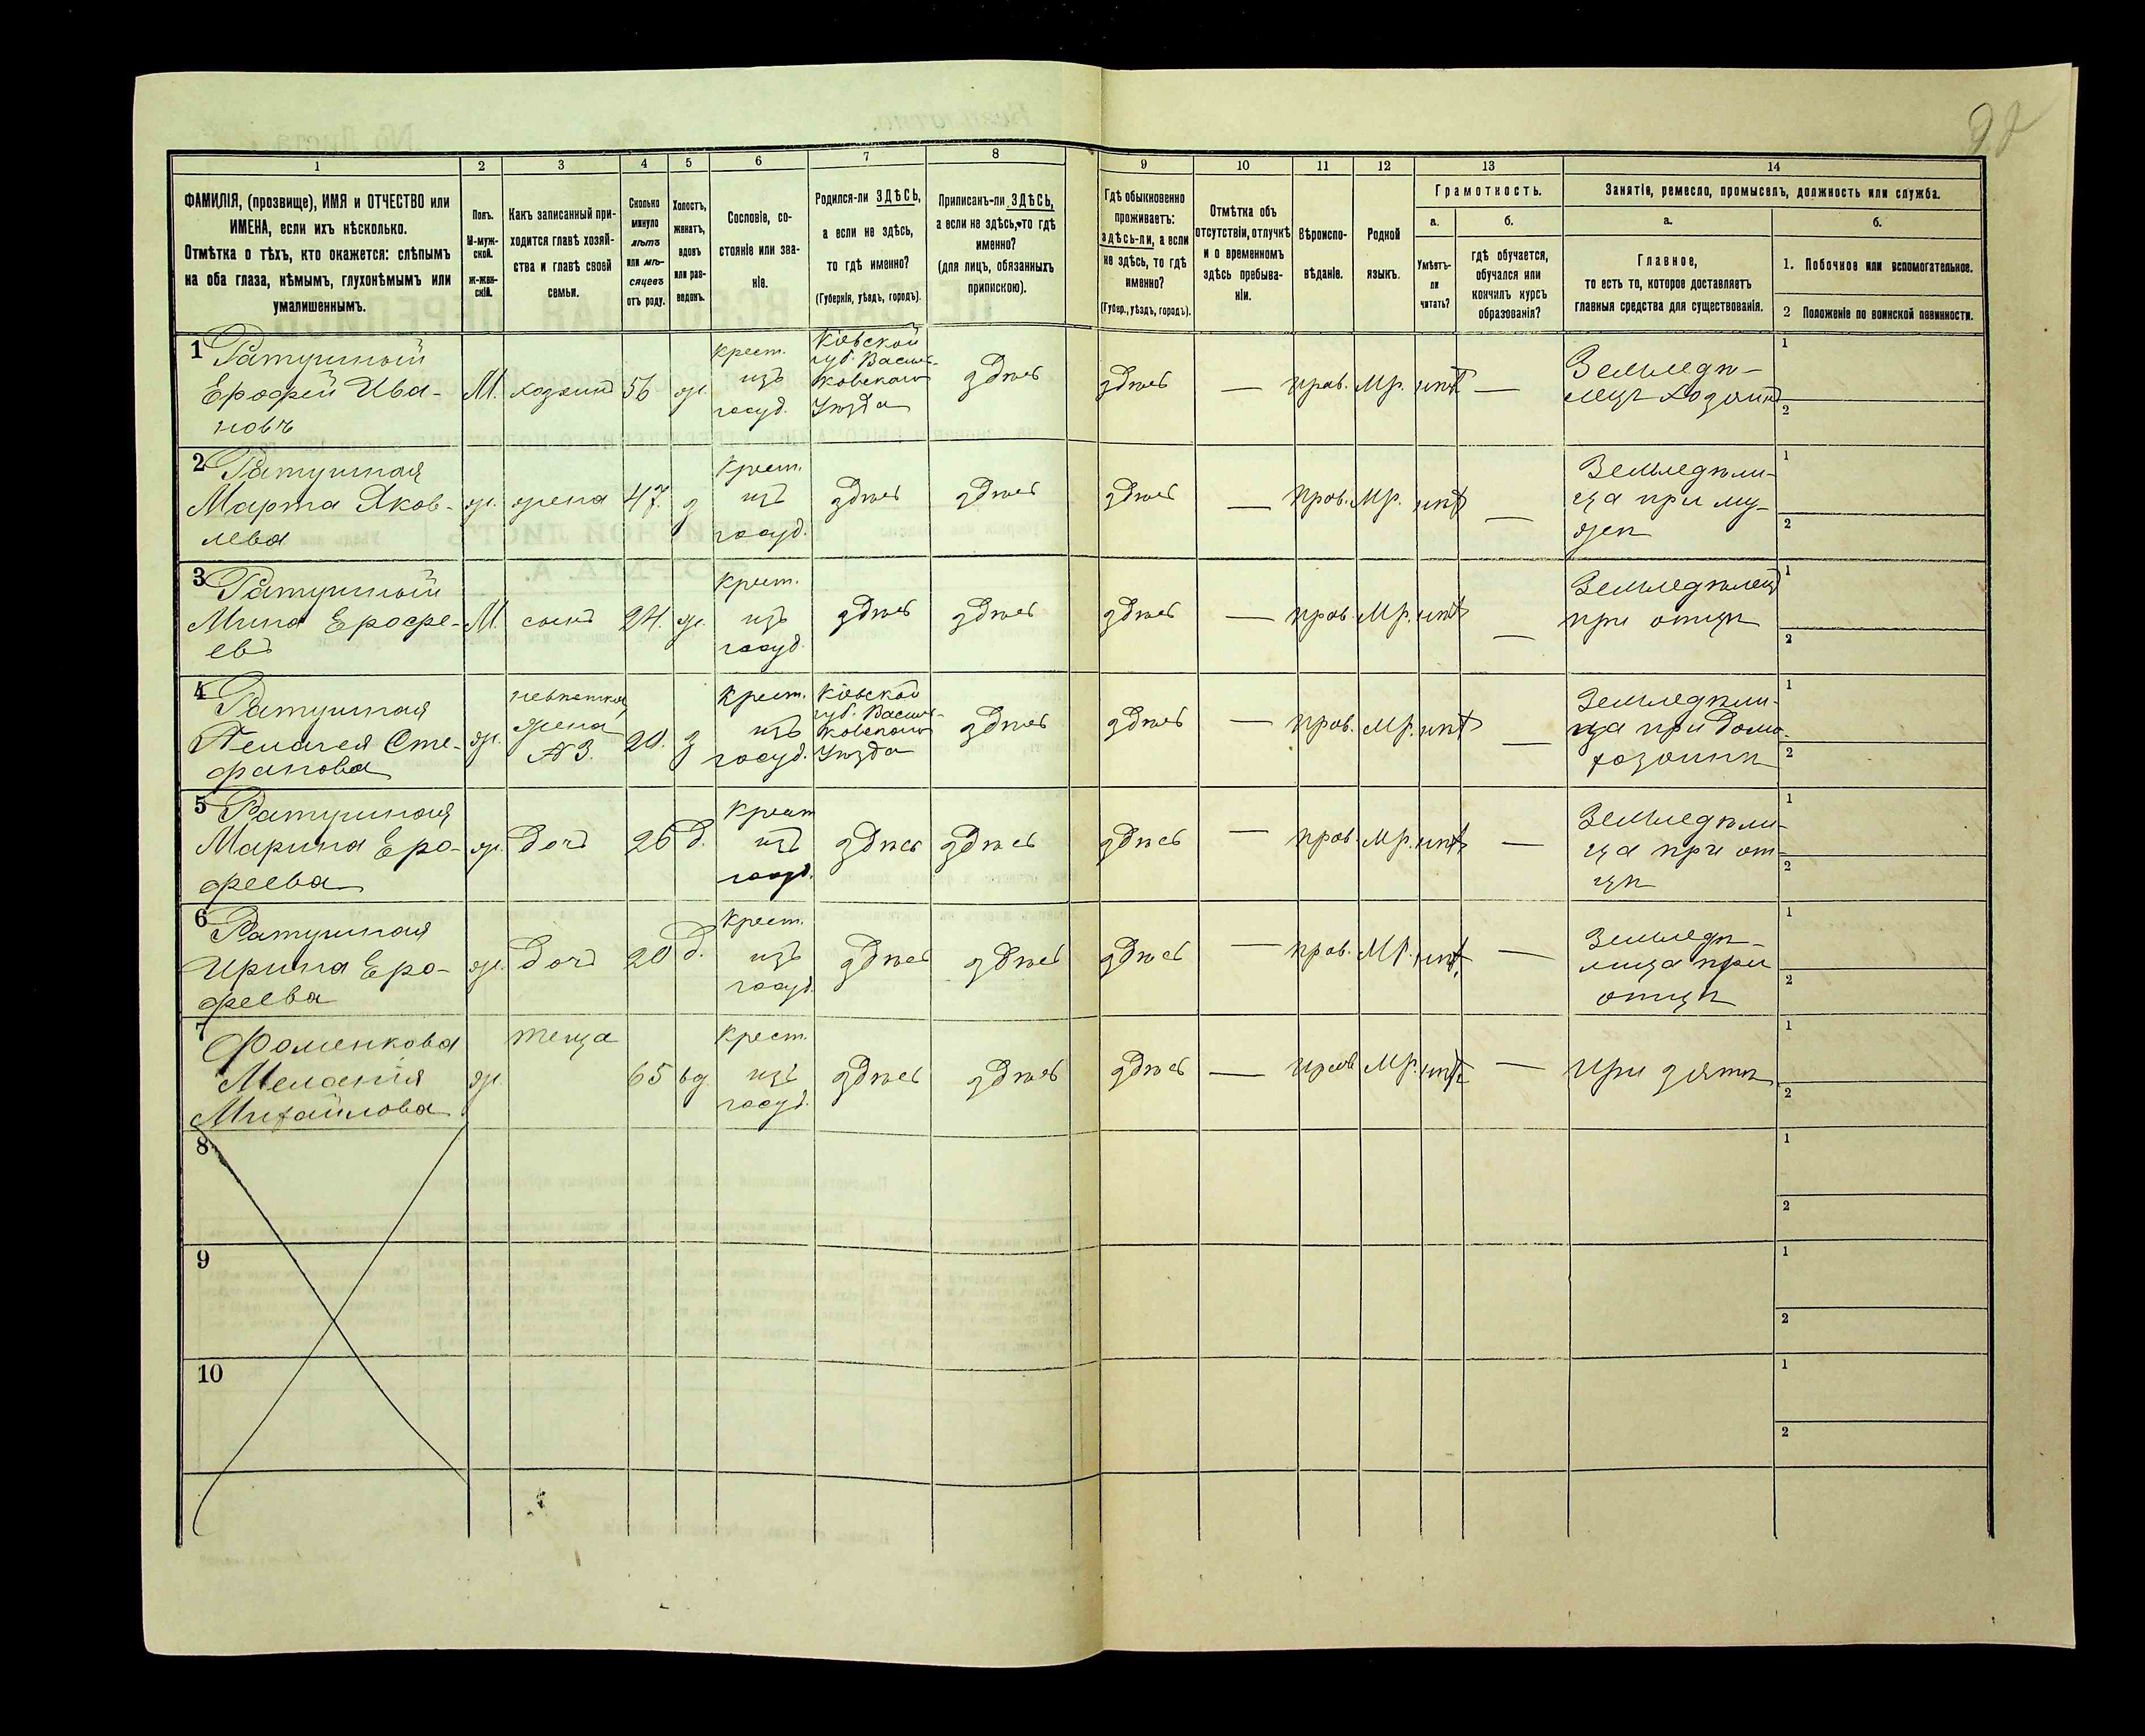 1 2 3 4 5 6 7 8 9 10 11 12 13 14
ФАМИЛІЯ, (прозвище), ИМЯ и ОТЧЕСТВО или
ИМЕНА, если ихъ нѣсколько.
Отмѣтка о тѣхъ, кто окажется: слѣпымъ
на оба глаза, нѣмымъ, глухонѣмымъ или
умалишеннымъ.
Полъ.
М-муж-
ской.
ж-жен-
скій.
Какъ записанный при-
ходится главѣ хозяй-
ства и главѣ своей
семьи.
Сколько
минуло
лѣтъ
или мѣ-
сяцевъ
отъ роду.
Холостъ,
женатъ,
вдовъ
или раз-
веденъ.
Сословіе, со-
стояніе или зва-
ніе.
Родился-ли ЗДѢСЬ,
а если не здѣсь,
то гдѣ именно?
(Губернія, уѣздъ, городъ).
Приписанъ-ли ЗДѢСЬ,
а если не здѣсь, то гдѣ
именно?
(для лицъ, обязанныхъ
припискою).
Гдѣ обыкновенно
проживаетъ:
здѣсь-ли, а если
не здѣсь, то гдѣ
именно?
(Губер., уѣздъ, городъ).
Отмѣтка объ
отсутствіи, отлучкѣ
и о временномъ
здѣсь пребыва-
ніи.
Вѣроиспо-
вѣданіе.
Родной
языкъ.
Грамотность.
а.
Умѣетъ-
ли
читать?
б.
гдѣ обучается,
обучался или
кончилъ курсъ
образованія?
Занятіе, ремесло, промыселъ, должность или служба.
а.
Главное,
то есть то, которое доставляетъ
главныя средства для существованія.
б.
1. Побочное или вспомогательное.
2 Положеніе по воинской повинности.
1 Ратушный
Ерофей Ива-
новъ
М.
хозяинъ
56
ж.
крест.
изъ
госуд.
Кіевской
губ. Василь-
ковскаго
Уѣзда
здѣсь
здѣсь
—
прав.
Мр.
нѣтъ
—
Земледѣ-
лецъ хозяинъ
1
2
2 Ратушная
Марта Яков-
лева
ж.
жена
47.
з
крест.
изъ
госуд.
здѣсь
здѣсь
здѣсь
—
прав.
Мр.
нѣтъ
—
Земледѣли-
ца при му-
жѣ
1
2
3 Ратушный
Мина Ерофе-
евъ
М
сынъ
24.
ж.
крест.
изъ
госуд.
здѣсь
здѣсь
здѣсь
—
прав.
Мр.
нѣтъ
—
Земледѣлецъ
при отцѣ
1
2
4 Ратушная
Пелагея Сте-
фанова
ж.
невѣстка,
жена
№ 3.
20.
з
крест.
изъ
госуд.
Кіевской
губ. Василь-
ковскаго
Уѣзда
здѣсь
здѣсь
—
прав.
Мр.
нѣтъ
—
Земледѣли-
ца при домо-
хозяинѣ
1
2
5 Ратушная
Марина Еро-
феева
ж.
дочь
26
д.
крест
изъ
госуд.
здѣсь
здѣсь
здѣсь
—
прав.
Мр.
нѣтъ
—
Земледѣли-
ца при от-
цѣ
1
2
6 Ратушная
Ирина Еро-
феева
ж.
дочь
20
д.
крест.
изъ
госуд.
здѣсь
здѣсь
здѣсь
—
прав.
Мр.
нѣтъ
—
Земледѣ-
лица при
отцѣ
1
2
7 Фоменкова
Меланія
Михайлова
ж.
теща
65
вд.
крест.
изъ
госуд.
здѣсь
здѣсь
здѣсь
—
прав
Мр.
нѣтъ
—
при зятѣ
1
2
8
1
2
9
1
2
10
1
2